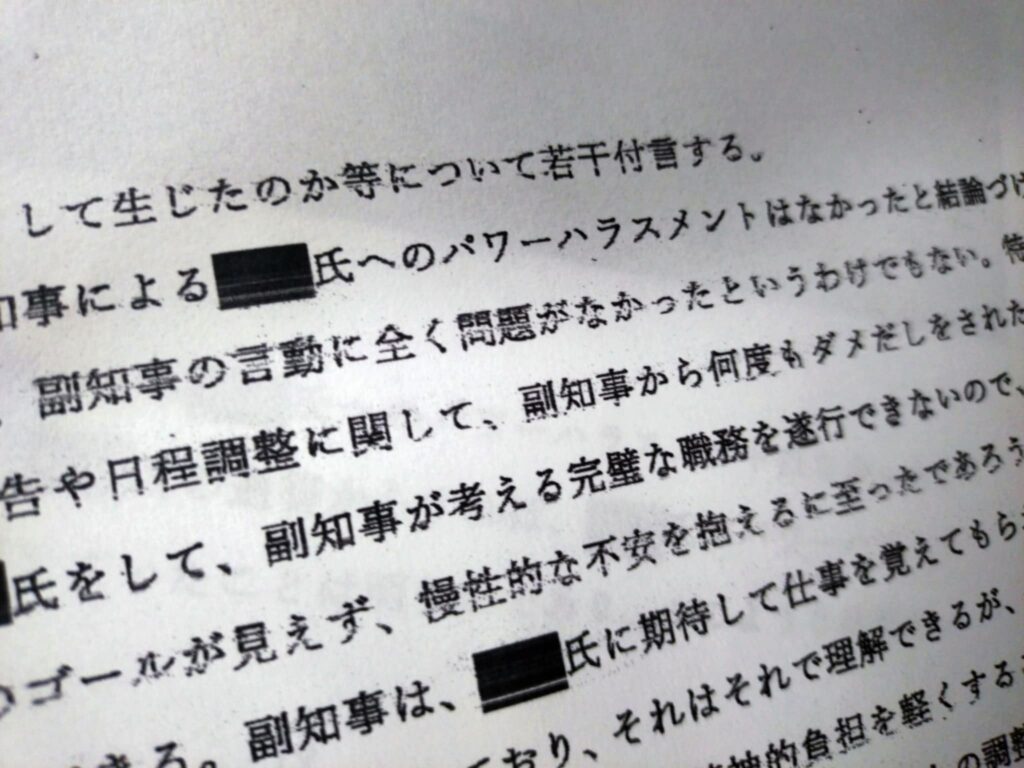 して生じたのか等について若干付言する。
知事による 氏へのパワーハラスメントはなかったと結論づけ
、副知事の言動に全く問題がなかったというわけでもない。特
告や日程調整に関して、副知事から何度もダメだしをされた
氏をして、副知事が考える完璧な職務を遂行できないので、
のゴールが見えず、慢性的な不安を抱えるに至ったであろう
きる。副知事は、 氏に期待して仕事を覚えてもら
ており、それはそれで理解できるが、
精神的負担を軽くする
の調整